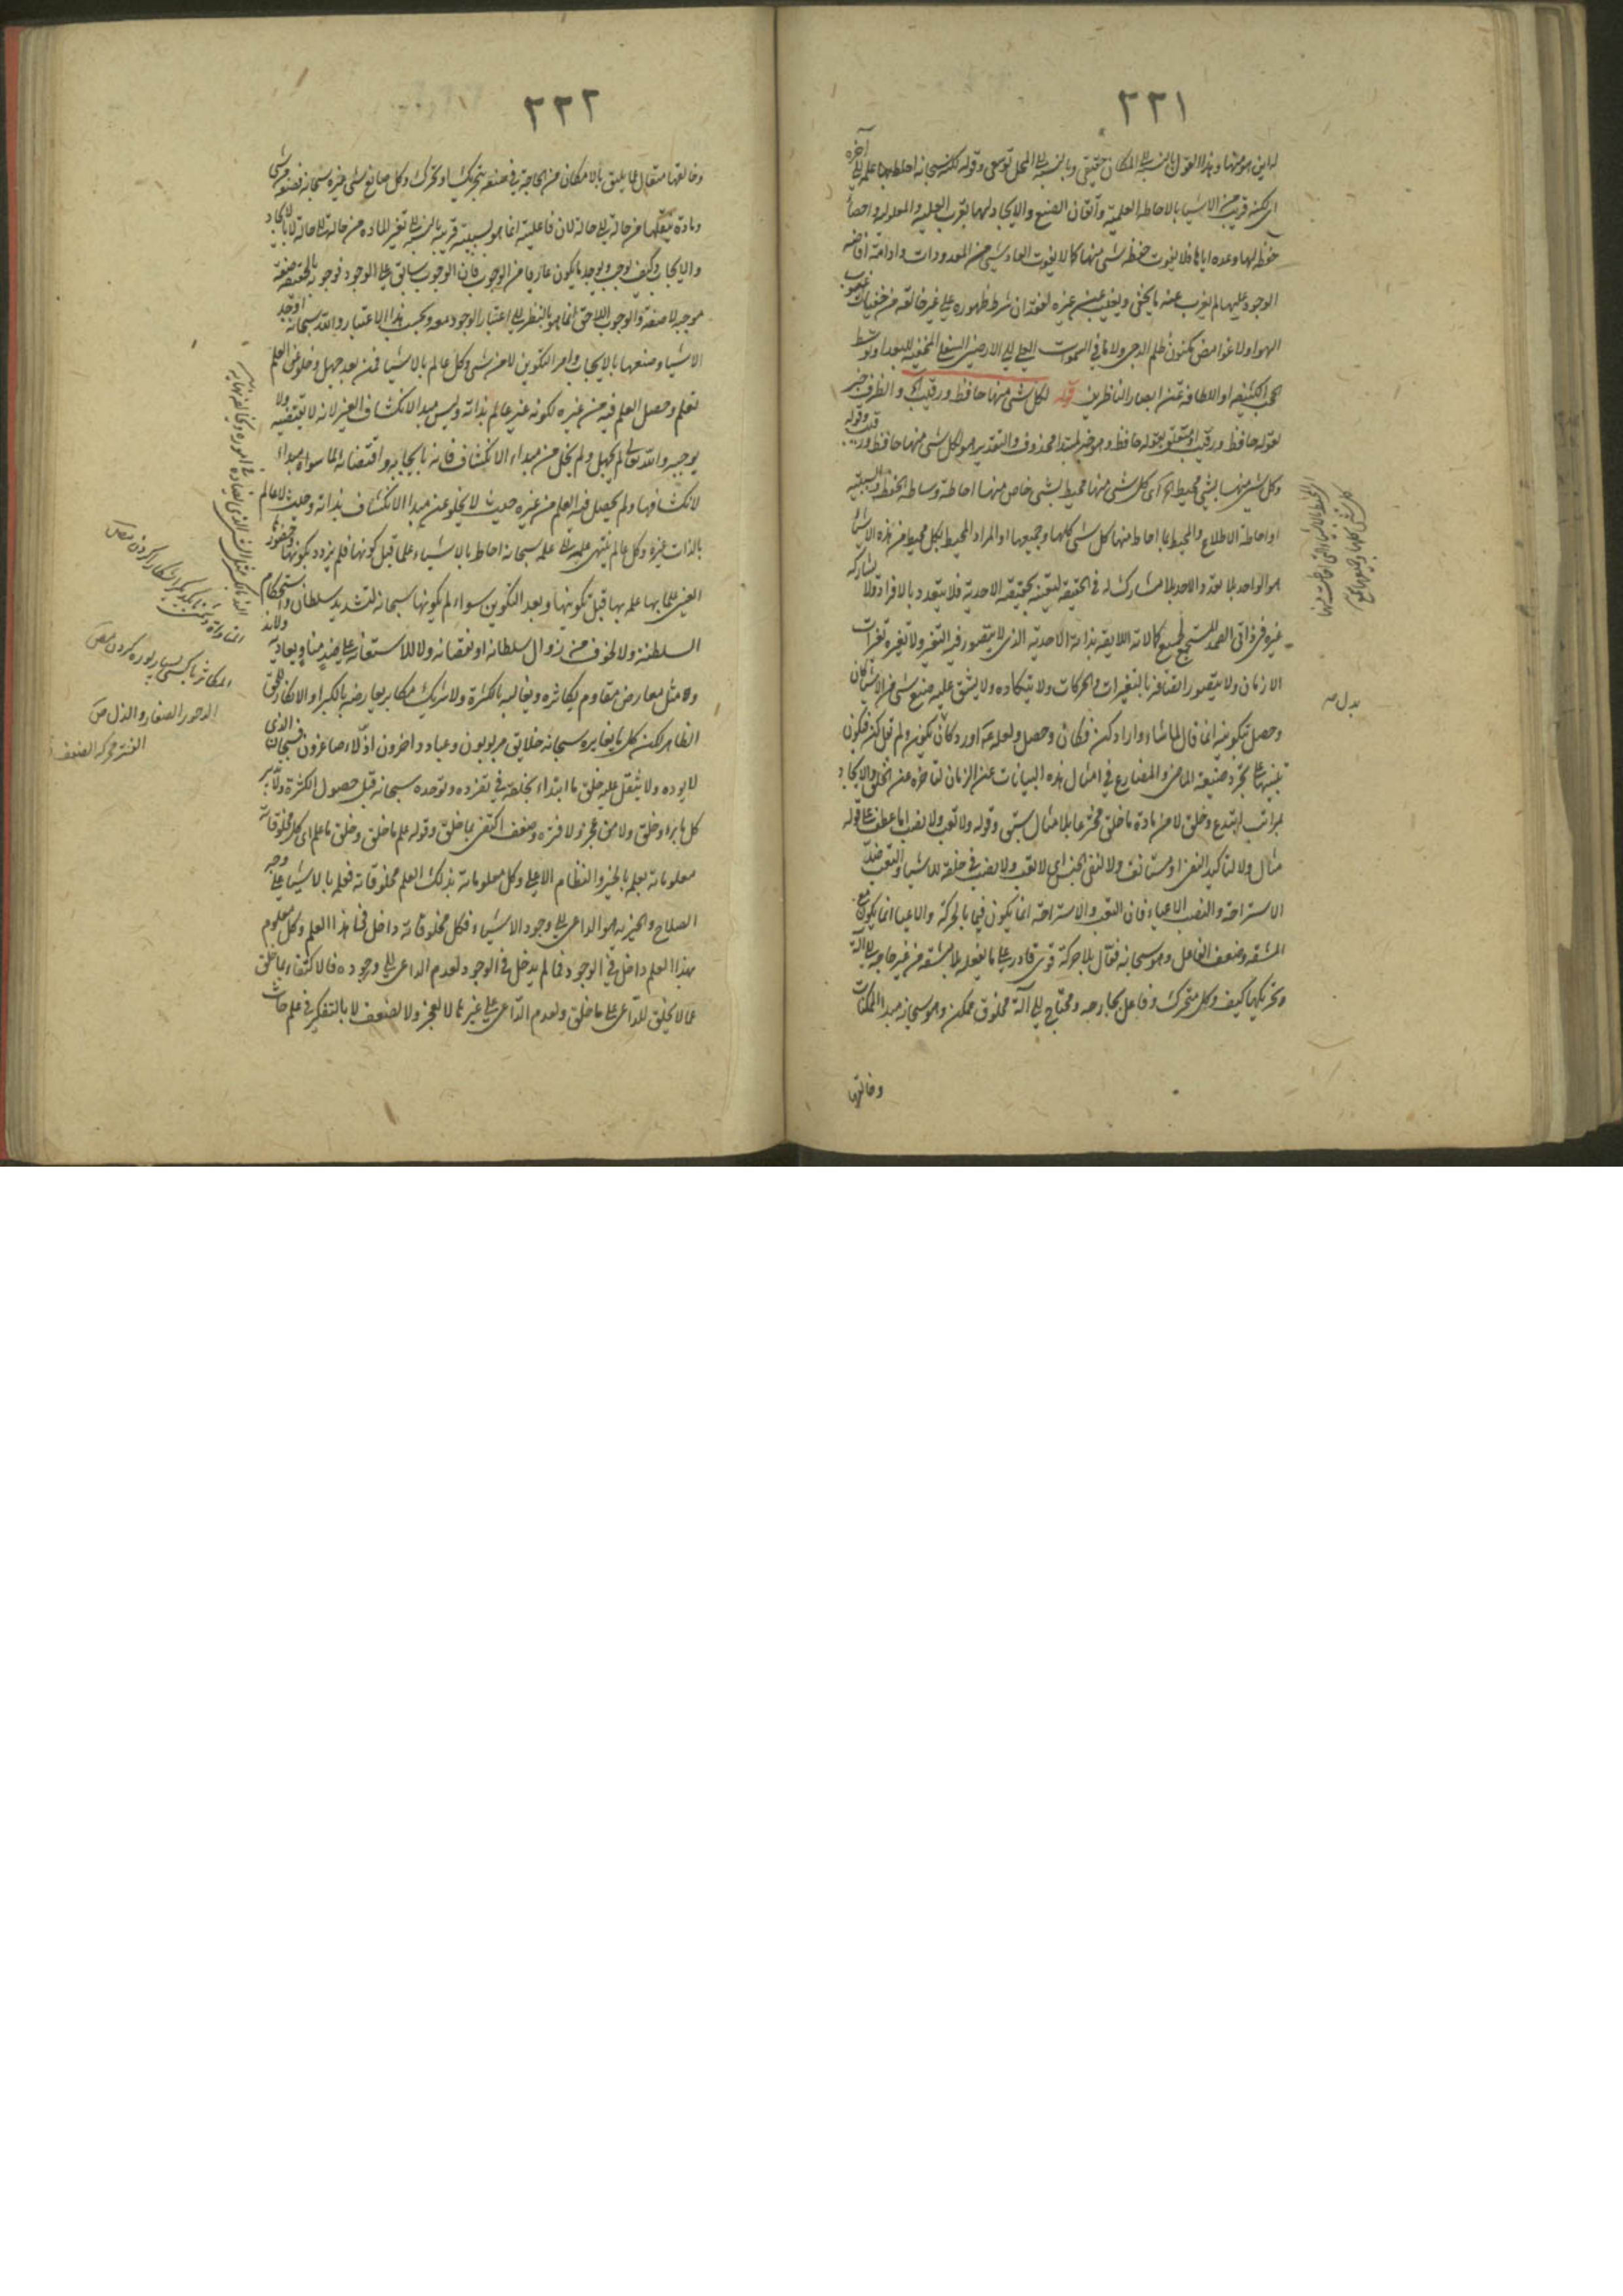 ٢٢١
له اين هو منها وهذا القول بالنسبة الى المكان حقيقي وبالنسبة الى المحل توسعي وقوله لكنه سبحانه احاط بها علمه الى آخره
اي لكنه قريب من الاشياء بالاحاطة العلمية واتقان الصنع والايجاد لهما بقرب العلية والمعلولية واحصاء
حفظ لها وعده اياها فلا يفوت حفظه شيء منها كما لا يفوت العاد شيء من المعدودات وادامة افاضة
الوجود عليها لم يعزب عنه ما يخفى ويغيب عن غيره لفقدان شرط ظهوره على غير خالقه من خفيات غيوب
الهواء ولا غوامض مكنون ظلم الدجى ولا ما في السموات العلى الى الارضين السفلى المخفية للبعد او توسط
الحجب الكثيفة او اللطافة عن ابصار الناظرين قوله لكل شيء منها حافظ ورقيب والظرف خبر
لقوله حافظ ورقيب او متعلق بقوله حافظ وهو خبر لمبتدا محذوف والتقدير هو لكل شيء منها حافظ ورقيب وقوله
وكل شيء منها بشيء محيط اه اي كل شيء منها محيط بشيء خاص منها احاطة وساطة الحفظ والسببية
او احاطة الاطلاع والمحيط بما احاط منها كل شيء كلها وجميعها او المراد المحيط بكل محيط من هذه الاشياء
هو الواحد بلا تعدد والاحد بلا مشارك له في الحقيقة لتعينه بحقيقته الاحدية فلا يتعدد بالافراد ولا يشاركه
غيره في ذاتي الصمد المستجمع لجميع كمالاته اللايقة بذاته الاحدية الذي لا يتصور فيه التغير ولا تغيره تغيرات
الازمان ولا يتصور اتصافه بالتغيرات والحركات ولا يتكاده ولا يشق عليه صنع شيء من الاشياء كان
وحصل بتكوينه انما قال لما شاء واراد كن فكان وحصل ولعله عه اورد كان تكون ولم تقل كن فيكون
تنبيها على تجرد صيغة الماضي والمضارع في امثال هذه البيانات عن الزمان لتاخره عن الخلق والايجاد
بمراتب ابتدع وخلق لا من مادة ما خلق مخترعا بلا مثال سبق وقوله ولا تعب ولا نصب اما عطف على قوله
مثال ولا لتاكيد النفي او مستانف ولا لنفي الجنس اي لا تعب ولا نصب في خلقه للاشياء والتعب ضد
الاستراحة والنصب الاعياء فان التعب والاستراحة انما يكون فيما بالحركة والاعياء انما يكون مع
المشقة وضعف الفاعل وهو سبحانه فعال بلا حركة قوي قادر على ما يفعله بلا مشقة من غير حاجة الى آلة
وتحريكها كيف وكل متحرك وفاعل بجارحة ومحتاج الى آلة مخلوق ممكن وهو سبحانه مبدا الممكنات
وخالقها
بدل صه
٢٢٢
وخالقها متعال عما يليق بالامكان من الحاجة في صنعه بتحريك او تحرك وكل صانع شيء غيره سبحانه فصنعه من شيء
ومادة ينقلها من حالة الى حالة لان فاعليته انما هو لسببية قريبة بالنسبة الى تغير المادة من حالة الى حالة لا بالايجاد
والايجاب وكيف يوجب ويوجد ما يكون عاريا من الوجوب فان الوجوب سابق على الوجود فوجوبه بالحقيقة صنعة
موجبه لا صنعه والوجوب اللاحق انما هو بالنظر الى اعتبار الوجود معه وبحسب هذا الاعتبار والله سبحانه اوجد
الاشياء وصنعها بالايجاب وامر التكوين لا من شيء وكل عالم بالاشياء فمن بعد جهل وخلو عن العلم
تعلم وحصل العلم فيه من غيره لكونه غير عالم بذاته وليس مبدا لانكشاف الغير لانه لا يقتضيه ولا
يوجبه والله تعالى لم يجهل ولم يخل من مبداء الانكشاف فانه بايجابه واقتضائه لما سواه مبداء
لانكشافها ولم يحصل فيه العلم من غيره حيث لا يخلو عن مبدا الانكشاف بذاته وحيث لا عالم
بالذات غيره وكل عالم ينتهي علمه الى علمه سبحانه احاط بالاشياء علما قبل كونها فلم يزدد بكونها وحضورها
العيني علما بها علمه بها قبل تكوينها وبعد التكوين سواء لم يكونها سبحانه لتشديد سلطان واستحكام
السلطنة ولا لخوف من زوال سلطانه او نقصانه ولا للاستعانة على ضد مناو يعاديه ولا ند
ولا مثل معارض مقاوم يكاثره ويغالبه بالكثرة ولا شريك مكابر يعارضه بالكبر او الانكار للحق
الظاهر لكن كل ما يغايره سبحانه خلايق مربوبون وعباد داخرون اذلاء صاغرون فسبحان الذي
لا يوده ولا يثقل عليه خلق ما ابتداء بخلقه في تفرده وتوحده سبحانه قبل حصول الكثرة ولا تدبير
كل ما براه وخلق ولا من عجز ولا فترة وضعف اكتفى بما خلق وقوله علم ما خلق وخلق ما علم اي كل مخلوقاته
معلوماته بعلمه بالخير والنظام الاعلى وكل معلوماته بذلك العلم مخلوقاته فعلمه بالاشياء على وجه
الصلاح والخيرية هو الداعي الى وجود الاشياء فكل مخلوقاته داخل في هذا العلم وكل معلوم
بهذا العلم داخل في الوجود فما لم يدخل في الوجود لعدم الداعي الى وجوده فالاكتفاء بما خلق
عما لا يخلق للداعي على ما خلق ولعدم الداعي على غيره لا لعجز ولا لضعف لا بالتفكر في علم حادث
المكاثرة باكسى بسيارى نبرد كردن ص
الدحور الصغار والذل ص
الفترة محركة الضعف